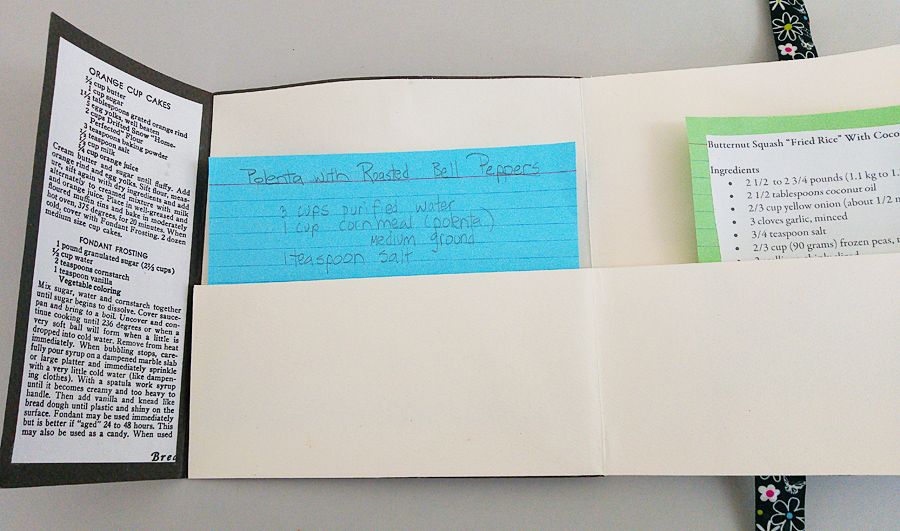 ORANGE CUP CAKES
¾ cup butter
1 cup sugar
1½ tablespoons grated orange rind
3 egg yolks, well beaten
2 cups Drifted Snow "Home-
Perfected" Flour
3 teaspoons baking powder
½ teaspoon salt
½ cup milk
¼ cup orange juice
Cream butter and sugar until fluffy. Add
orange rind and egg yolks. Sift flour, meas-
ure, sift again with dry ingredients and add
alternately to creamed mixture with milk
and orange juice. Place in well-greased and
floured muffin tins and bake in moderately
hot oven, 375 degrees, for 20 minutes. When
cold, cover with Fondant Frosting. 2 dozen
medium size cup cakes.
FONDANT FROSTING
1 pound granulated sugar (2½ cups)
½ cup water
2 teaspoons cornstarch
1 teaspoon vanilla
Vegetable coloring
Mix sugar, water and cornstarch together
until sugar begins to dissolve. Cover sauce-
pan and bring to a boil. Uncover and con-
tinue cooking until 236 degrees or when a
very soft ball will form when a little is
dropped into cold water. Remove from heat
immediately. When bubbling stops, care-
fully pour syrup on a dampened marble slab
or large platter and immediately sprinkle
with a very little cold water (like dampen-
ing clothes). With a spatula work syrup
until it becomes creamy and too heavy to
handle. Then add vanilla and knead like
bread dough until plastic and shiny on the
surface. Fondant may be used immediately
but is better if "aged" 24 to 48 hours. This
may also be used as a candy. When used
Brea
Polenta with Roasted Bell Peppers
3 cups purified water
1 cup cornmeal (polenta)
medium ground
1 teaspoon salt
Butternut Squash "Fried Rice" With Coco
Ingredients
• 2 1/2 to 2 3/4 pounds (1.1 kg to 1.
• 2 1/2 tablespoons coconut oil
• 2/3 cup yellow onion (about 1/2 m
• 3 cloves garlic, minced
• 3/4 teaspoon salt
• 2/3 cup (90 grams) frozen peas, t